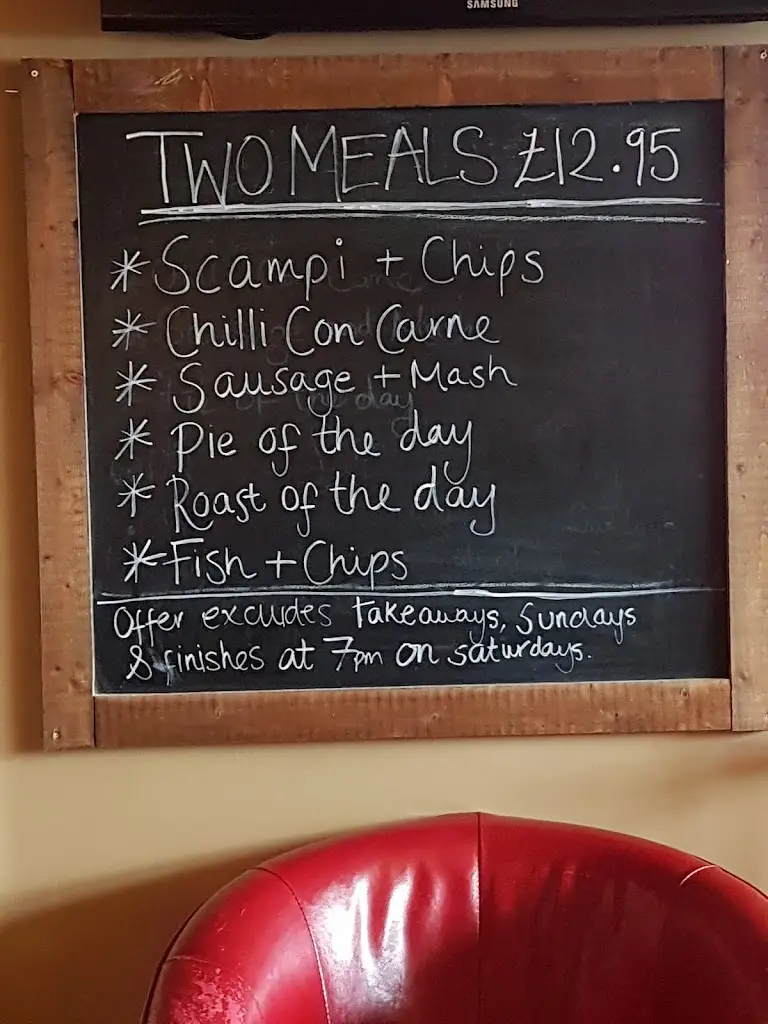 SAMSUNG
TWO MEALS £12.95
* Scampi + Chips
* Chilli Con Carne
* Sausage + Mash
* Pie of the day
* Roast of the day
* Fish + Chips
Offer excludes takeaways, Sundays
& finishes at 7pm on saturdays.